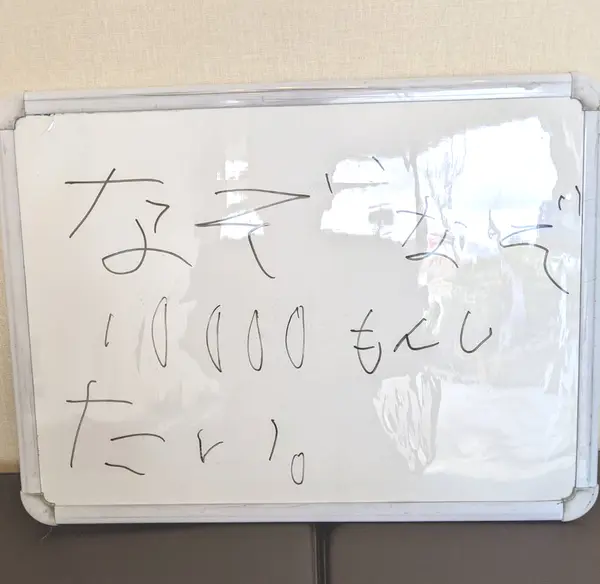 なぞなぞ
10000もんし
たい。